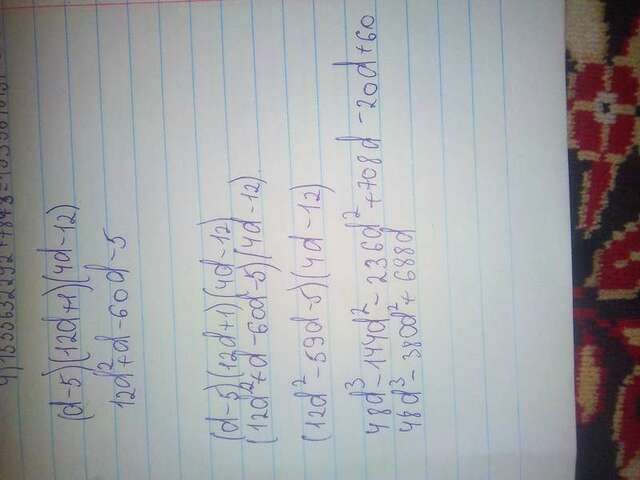 (d-5)(12d+1)(4d-12)
12d²+d-60d-5
(d-5)(12d+1)(4d-12)
(12d²+d-60d-5)(4d-12)
(12d²-59d-5)(4d-12)
48d³-144d²-236d²+708d-20d+60
48d³-380d²+688d